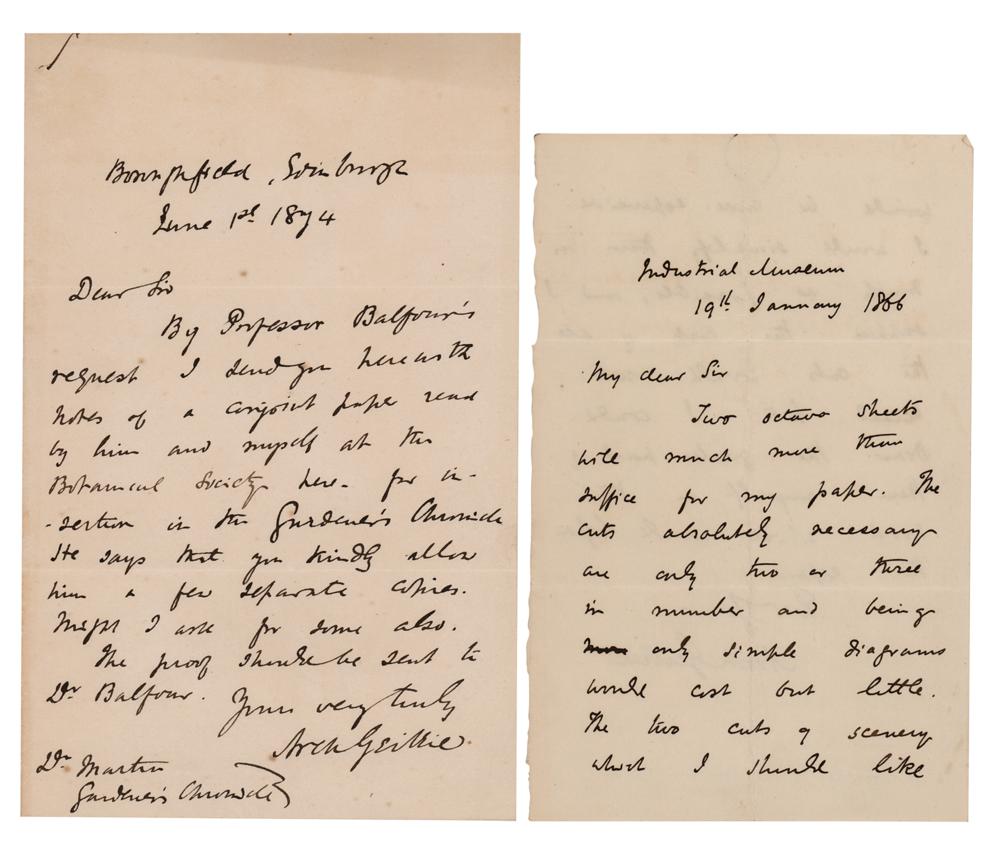 Boroughfield, Edinburgh
June 1st 1874
Dear Sir
By Professor Balfour's
request I send you herewith
notes of a conjoint paper read
by him and myself at the
Botanical Society here - for in-
-sertion in the Gardener's Chronicle
He says that you kindly allow
him a few separate copies.
Might I ask for some also.
The proof should be sent to
Dr Balfour.
Yours very truly
Arch Geikie
Dr Martin
Gardener's Chronicle
Industrial Museum
19th January 1866
My dear Sir
Two octavo sheets
will much more than
suffice for my paper. The
cuts absolutely necessary
are only two or three
in number and being
only simple diagrams
would cost but little.
The two cuts of scenery
which I should like